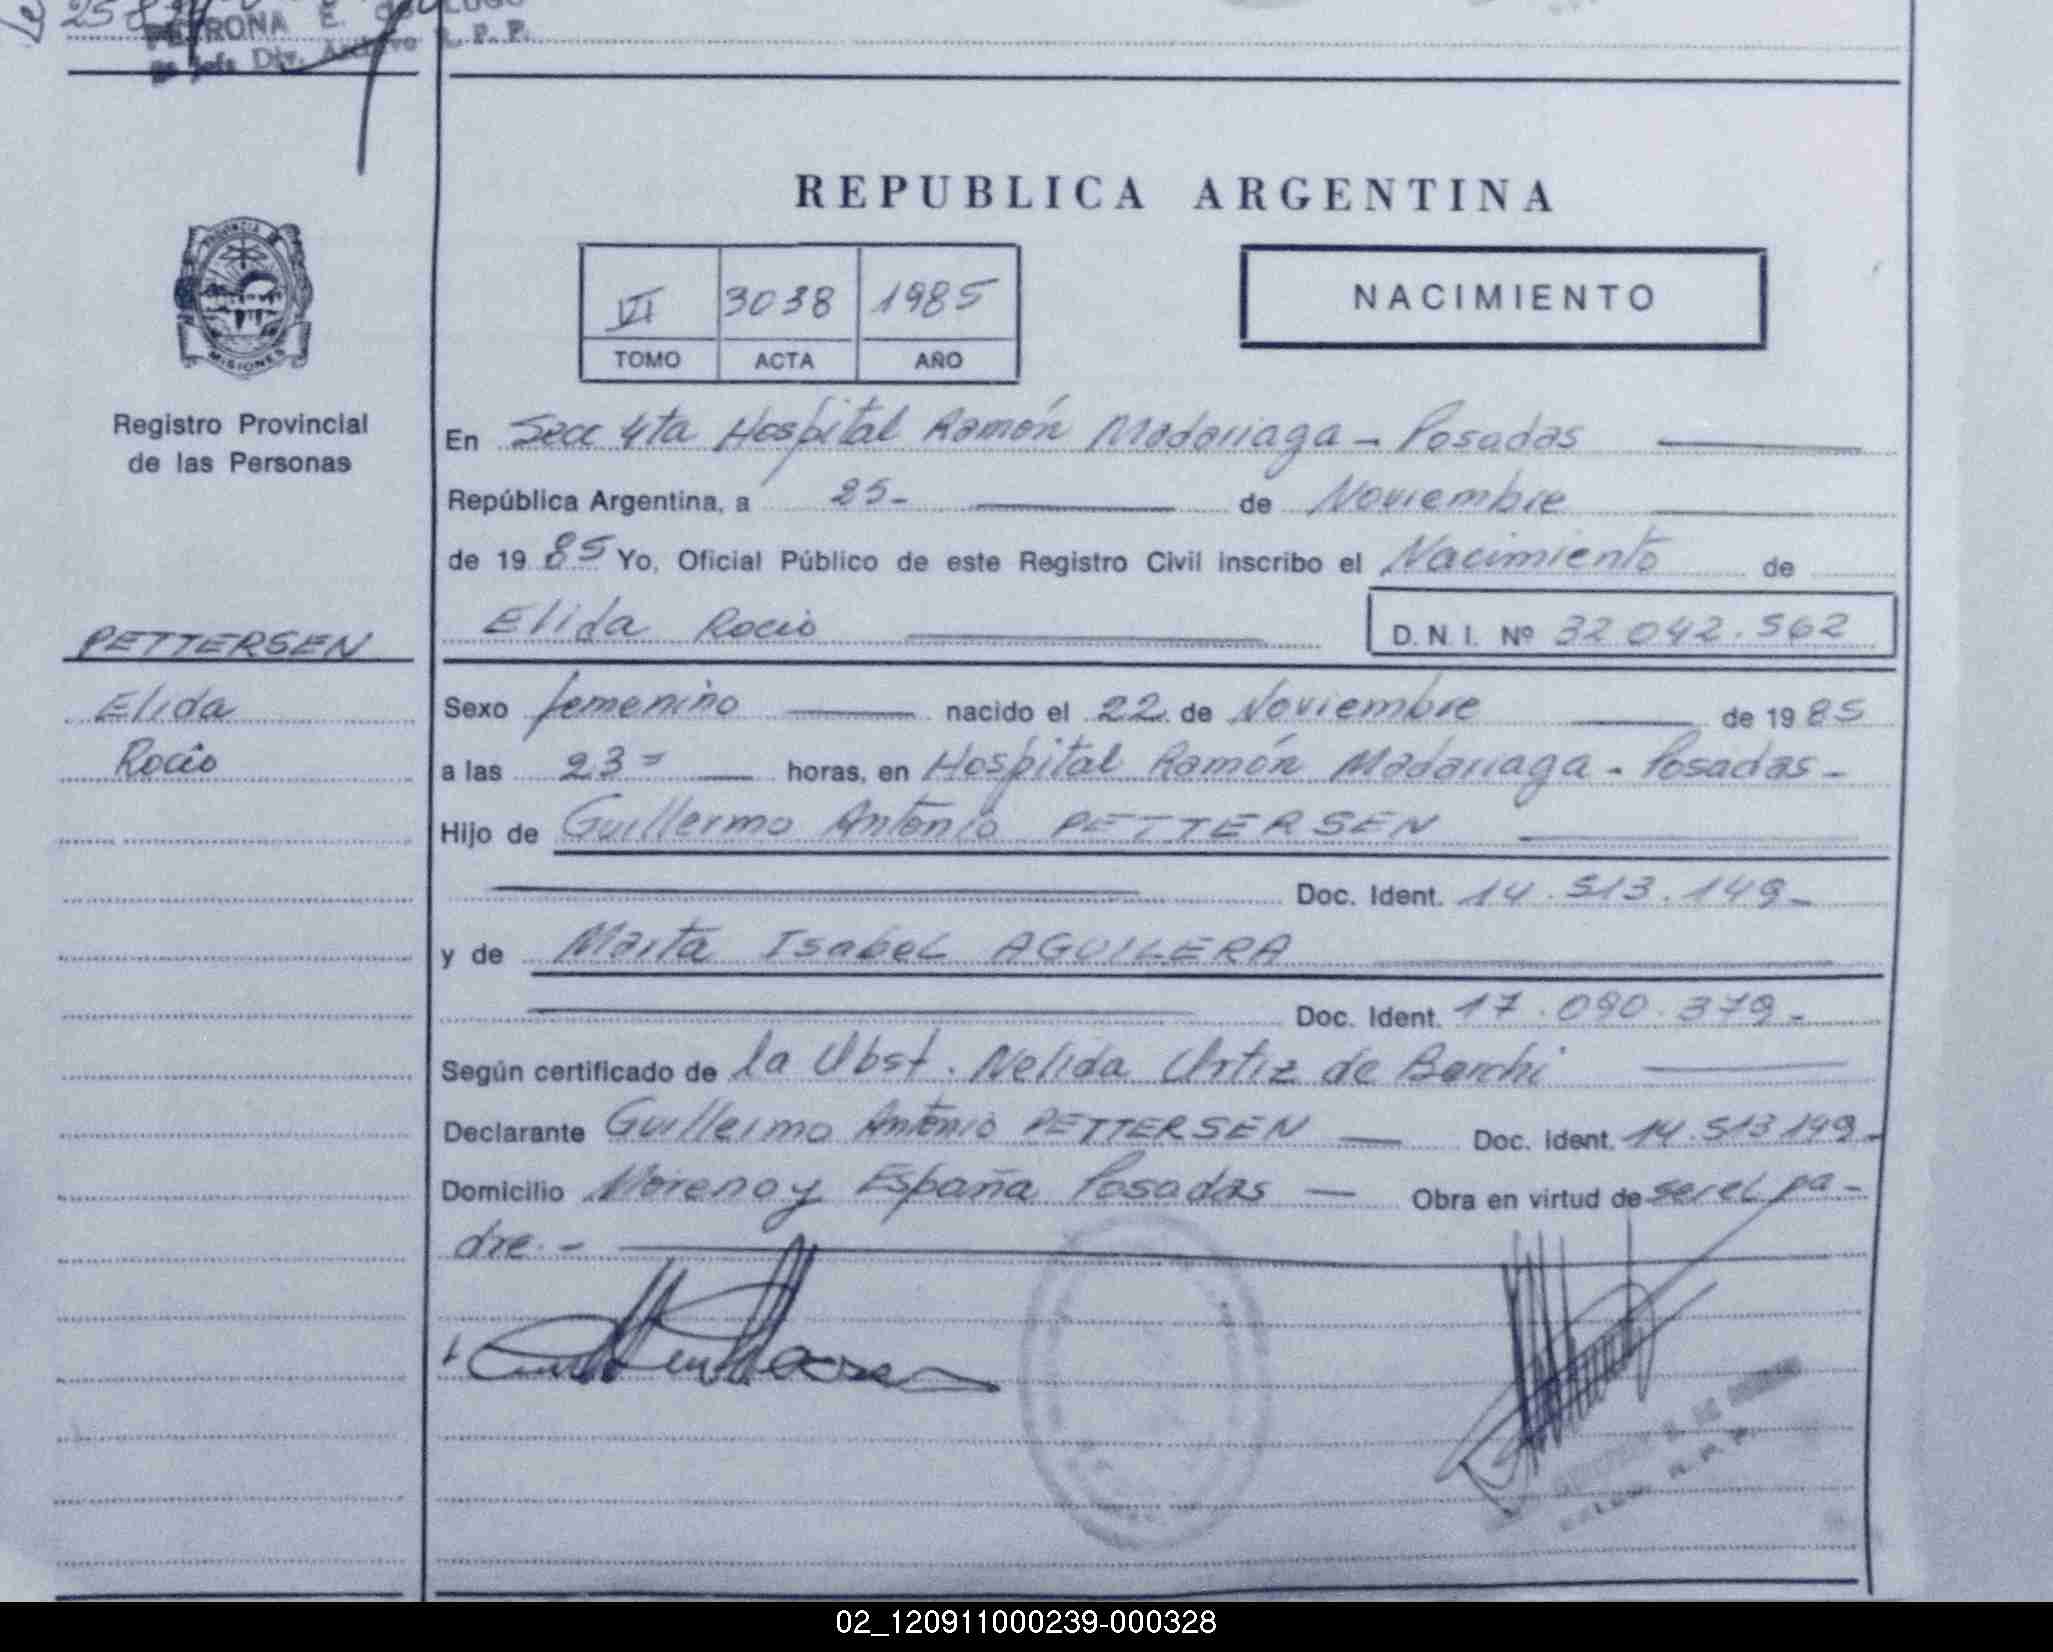 25
PETRONA E. de LUGO
Jefe Div. Archivo R. P. P.
REPUBLICA ARGENTINA
PROVINCIA DE
MISIONES
VI 3038 1985
TOMO ACTA AÑO
NACIMIENTO
Registro Provincial
de las Personas
PETTERSEN
Elida
Rocio
En Secc 4ta Hospital Ramón Madariaga - Posadas
República Argentina, a 25- de Noviembre
de 19 85 Yo, Oficial Público de este Registro Civil inscribo el Nacimiento de
Elida Rocio D. N. I. Nº 32 042.562
Sexo femenino nacido el 22 de Noviembre de 19 85
a las 23= horas, en Hospital Ramón Madariaga - Posadas -
Hijo de Guillermo Antonio PETTERSEN
Doc. Ident. 14.513.149-
y de Marta Isabel AGUILERA
Doc. Ident. 17.090.379-
Según certificado de la Obst. Nelida Ortiz de Barchi
Declarante Guillermo Antonio PETTERSEN Doc. ident. 14.513.149-
Domicilio Moreno y España Posadas Obra en virtud de ser el pa-
dre.-
R. P. P.
02_120911000239-000328